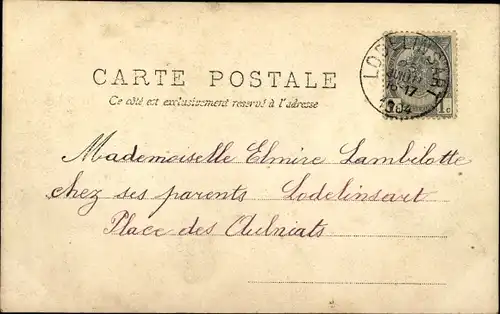 CARTE POSTALE
Ce côté est exclusivement reservé à l'adresse
LODELINSART
1904
1 c
Mademoiselle Elmire Lambilotte
chez ses parents Lodelinsart
Place des Aulniats